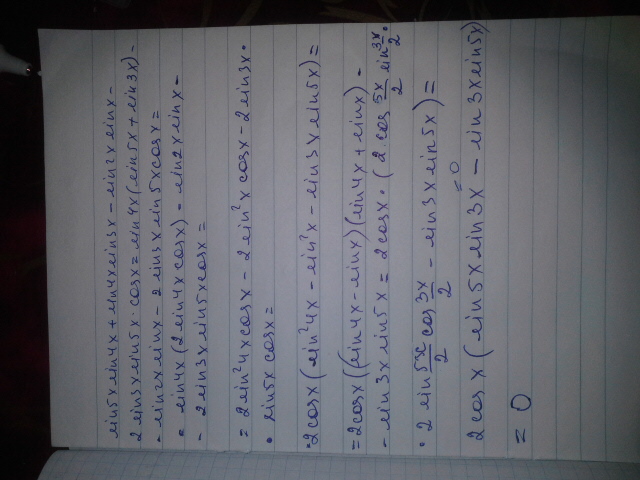 sin5x sin4x + sin4x sin3x - sin2x sinx -
2sin3x sin5x · cosx = sin4x (sin5x + sin3x) -
- sin2x sinx - 2sin3x sin5x cosx =
= sin4x (2sin4x cosx) - sin2x sinx -
- 2sin3x sin5x cosx =
= 2sin²4x cosx - 2sin²x cosx - 2sin3x ·
· sin5x cosx =
· 2cosx (sin²4x - sin²x - sin3x sin5x) =
= 2cosx ((sin4x - sinx)(sin4x + sinx) -
- sin3x sin5x = 2cosx · (2 · cos 5x/2 sin 3x/2 ·
· 2 sin 5x/2 cos 3x/2 - sin3x sin5x) =
2cosx (sin5x sin3x - sin3x sin5x) = 0
= 0